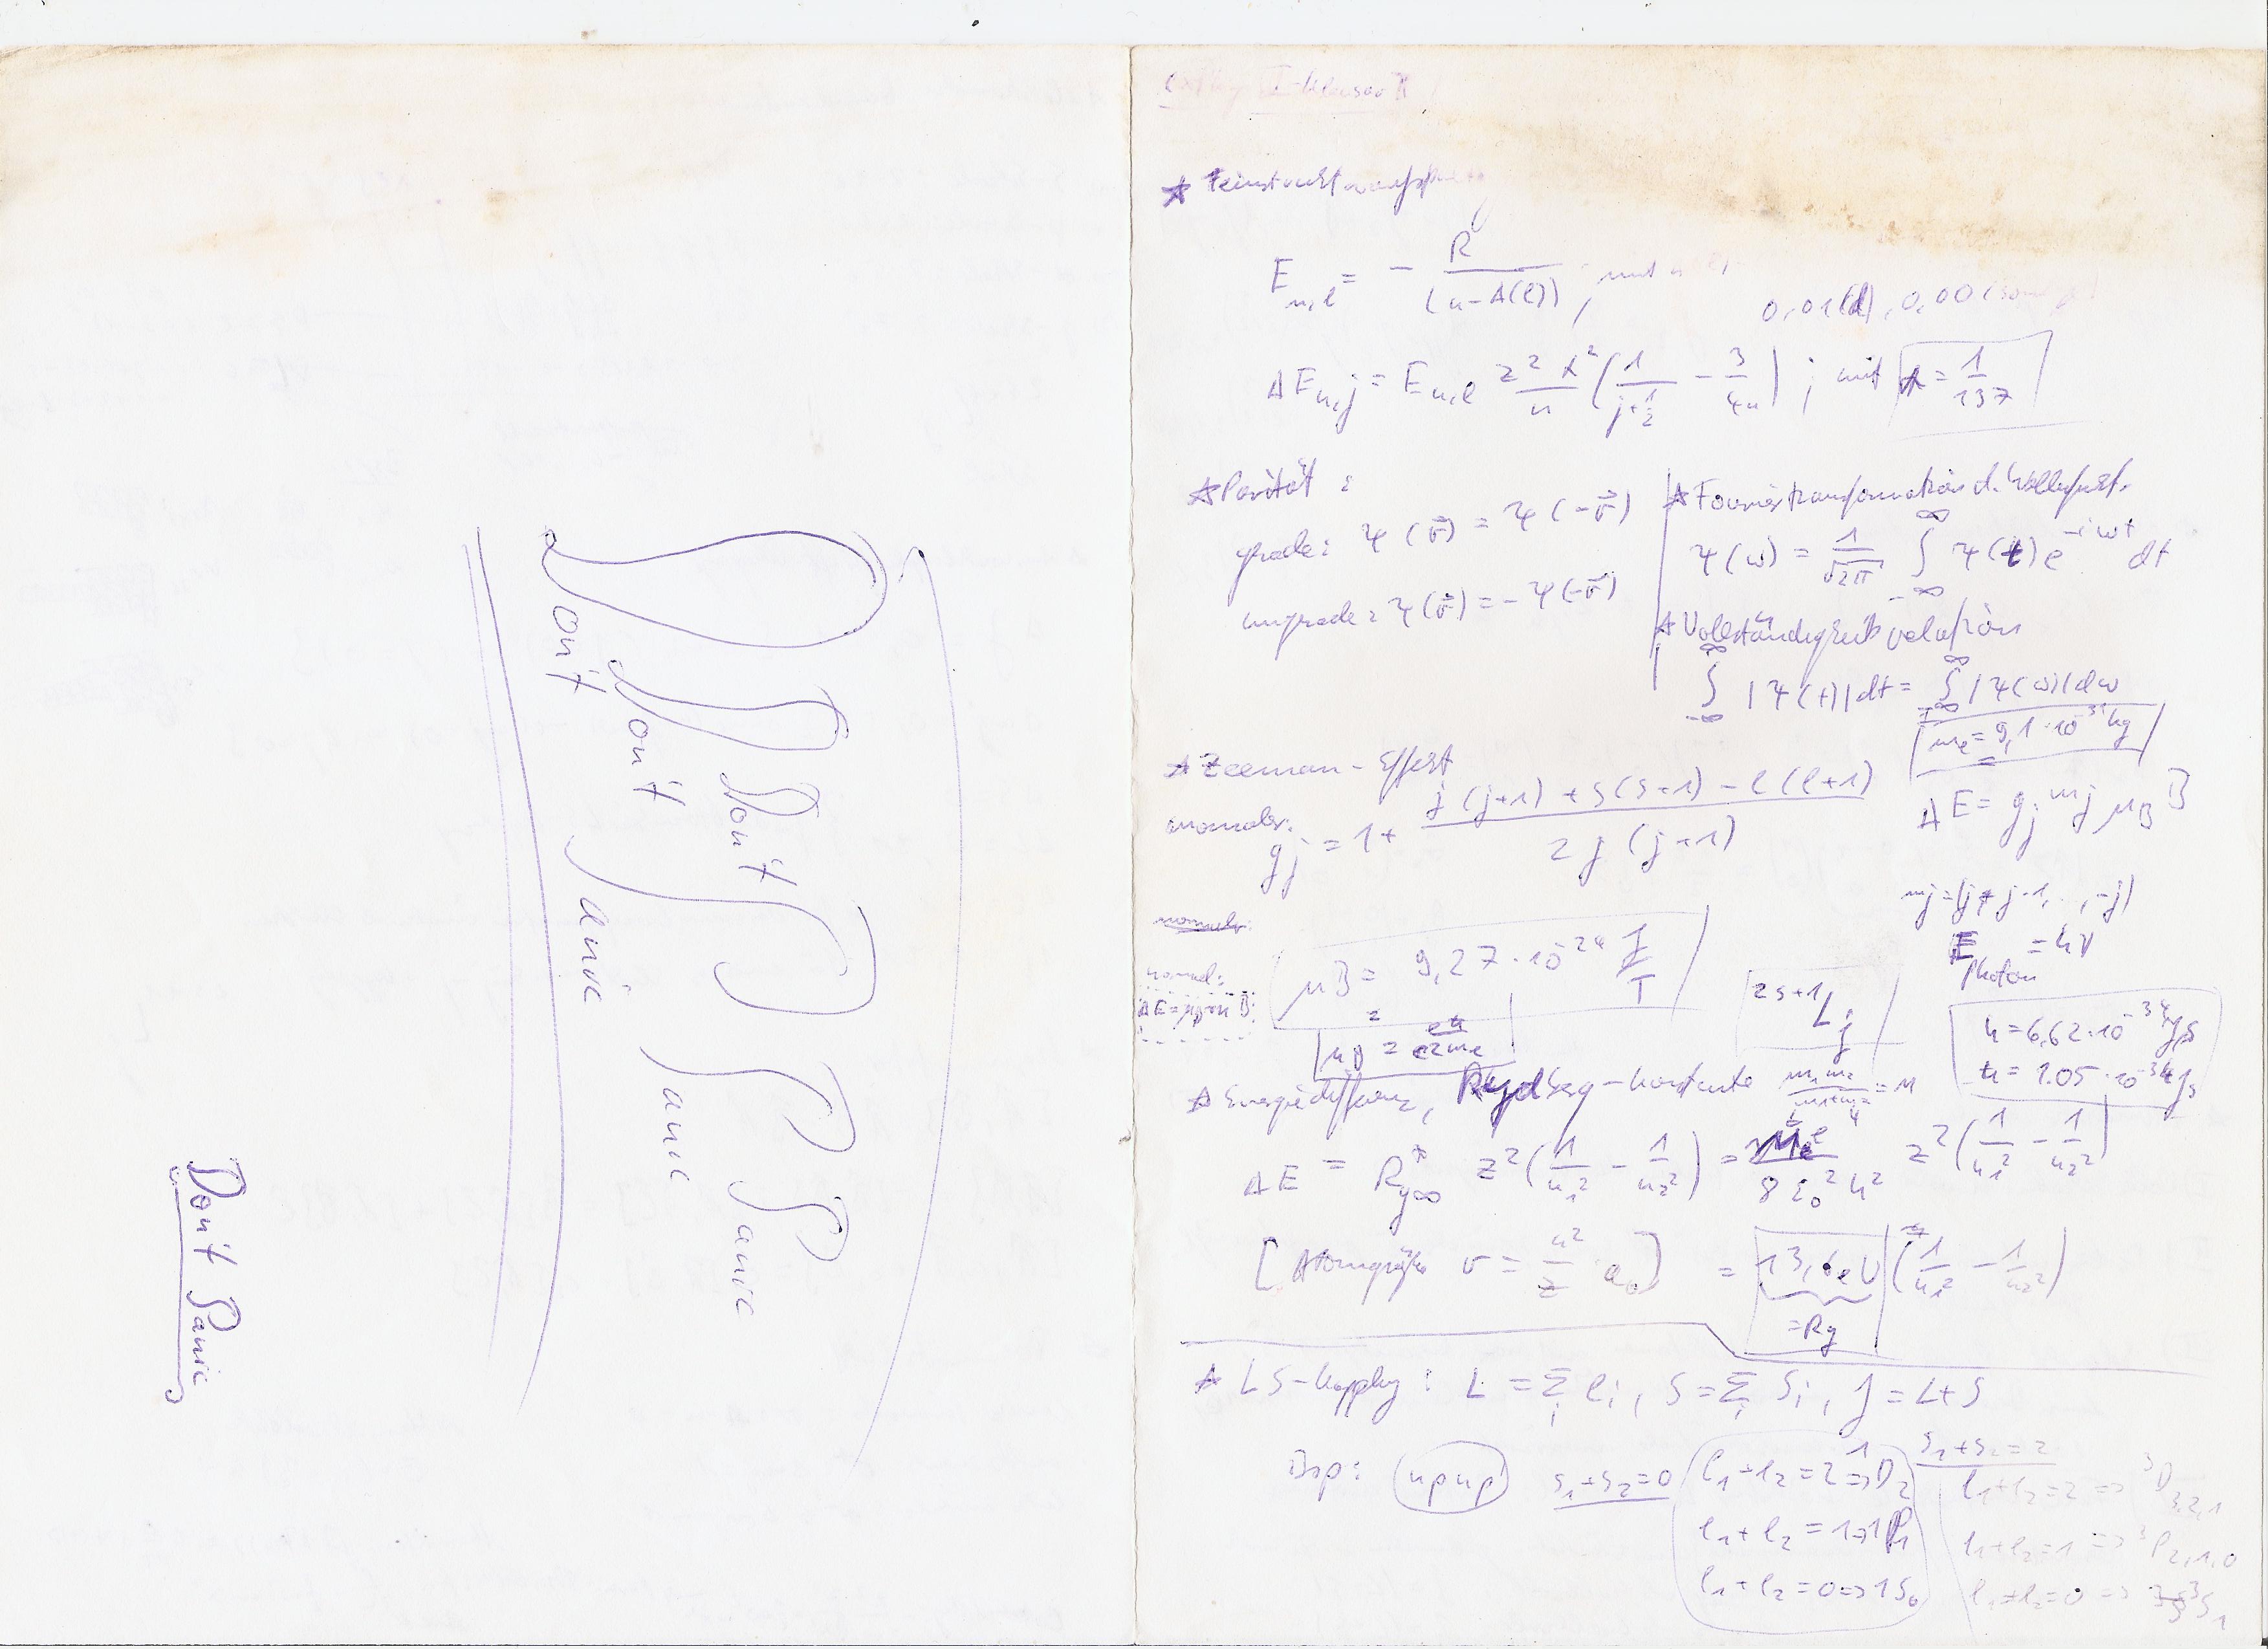 Dont Panic
Dont Panic
Dont Panic
Dont Panic
I-Klausur
★ Feinstrukturaufspaltung
E_{n,l} = - R / (n-Δ(l)) ; mit
0,01(d), 0,00 (sonstige)
ΔE_{n,j} = E_{n,l} z² α² / n (1/(j+1/2) - 3/4n) ; mit α = 1/137
★ Parität :
grade: ψ(r⃗) = ψ(-r⃗)
ungrade: ψ(r⃗) = -ψ(-r⃗)
★ Fouriertransformation d. Wellenfkt.
ψ(ω) = 1/√2π ∫_{-∞}^{∞} ψ(t) e^{-iωt} dt
★ Vollständigkeitsrelation
∫_{-∞}^{∞} |ψ(t)| dt = ∫_{-∞}^{∞} |ψ(ω)| dω
m_e = 9,1·10^{-31} kg
★ Zeeman-Effekt
anomaler:
g_j = 1 + (j(j+1) + s(s+1) - l(l+1)) / 2j(j+1)
ΔE = g_j m_j μ_B B
m_j = (j, j-1, .., -j)
E_Photon = hν
normal:
ΔE = μ_B m B
μB = 9,27·10^{-24} J/T
μB = eħ / 2m_e
^{2s+1}L_j
h = 6,62·10^{-34} Js
ħ = 1.05·10^{-34} Js
★ Energiedifferenz, Rydberg-Konstante m₁m₂ / m₁+m₂ = μ
ΔE = R*_{y∞} z² (1/n₁² - 1/n₂²) = M_e e⁴ / 8ε₀²h² z² (1/n₁² - 1/n₂²)
[Atomgröße r = n²/z a₀] = 13,6eV (1/n₁² - 1/n₂²)
= Ry
★ LS-Kopplung : L = Σ_i l_i, S = Σ_i s_i, J = L+S
Bsp: npnp s₁+s₂=0 l₁+l₂=2 => ¹D₂
l₁+l₂=1 => 1P₁
l₁+l₂=0 => 1S₀
s₁+s₂=2
l₁+l₂=2 => ³D_{3,2,1}
l₁+l₂=1 => ³P_{2,1,0}
l₁+l₂=0 => ³S₁